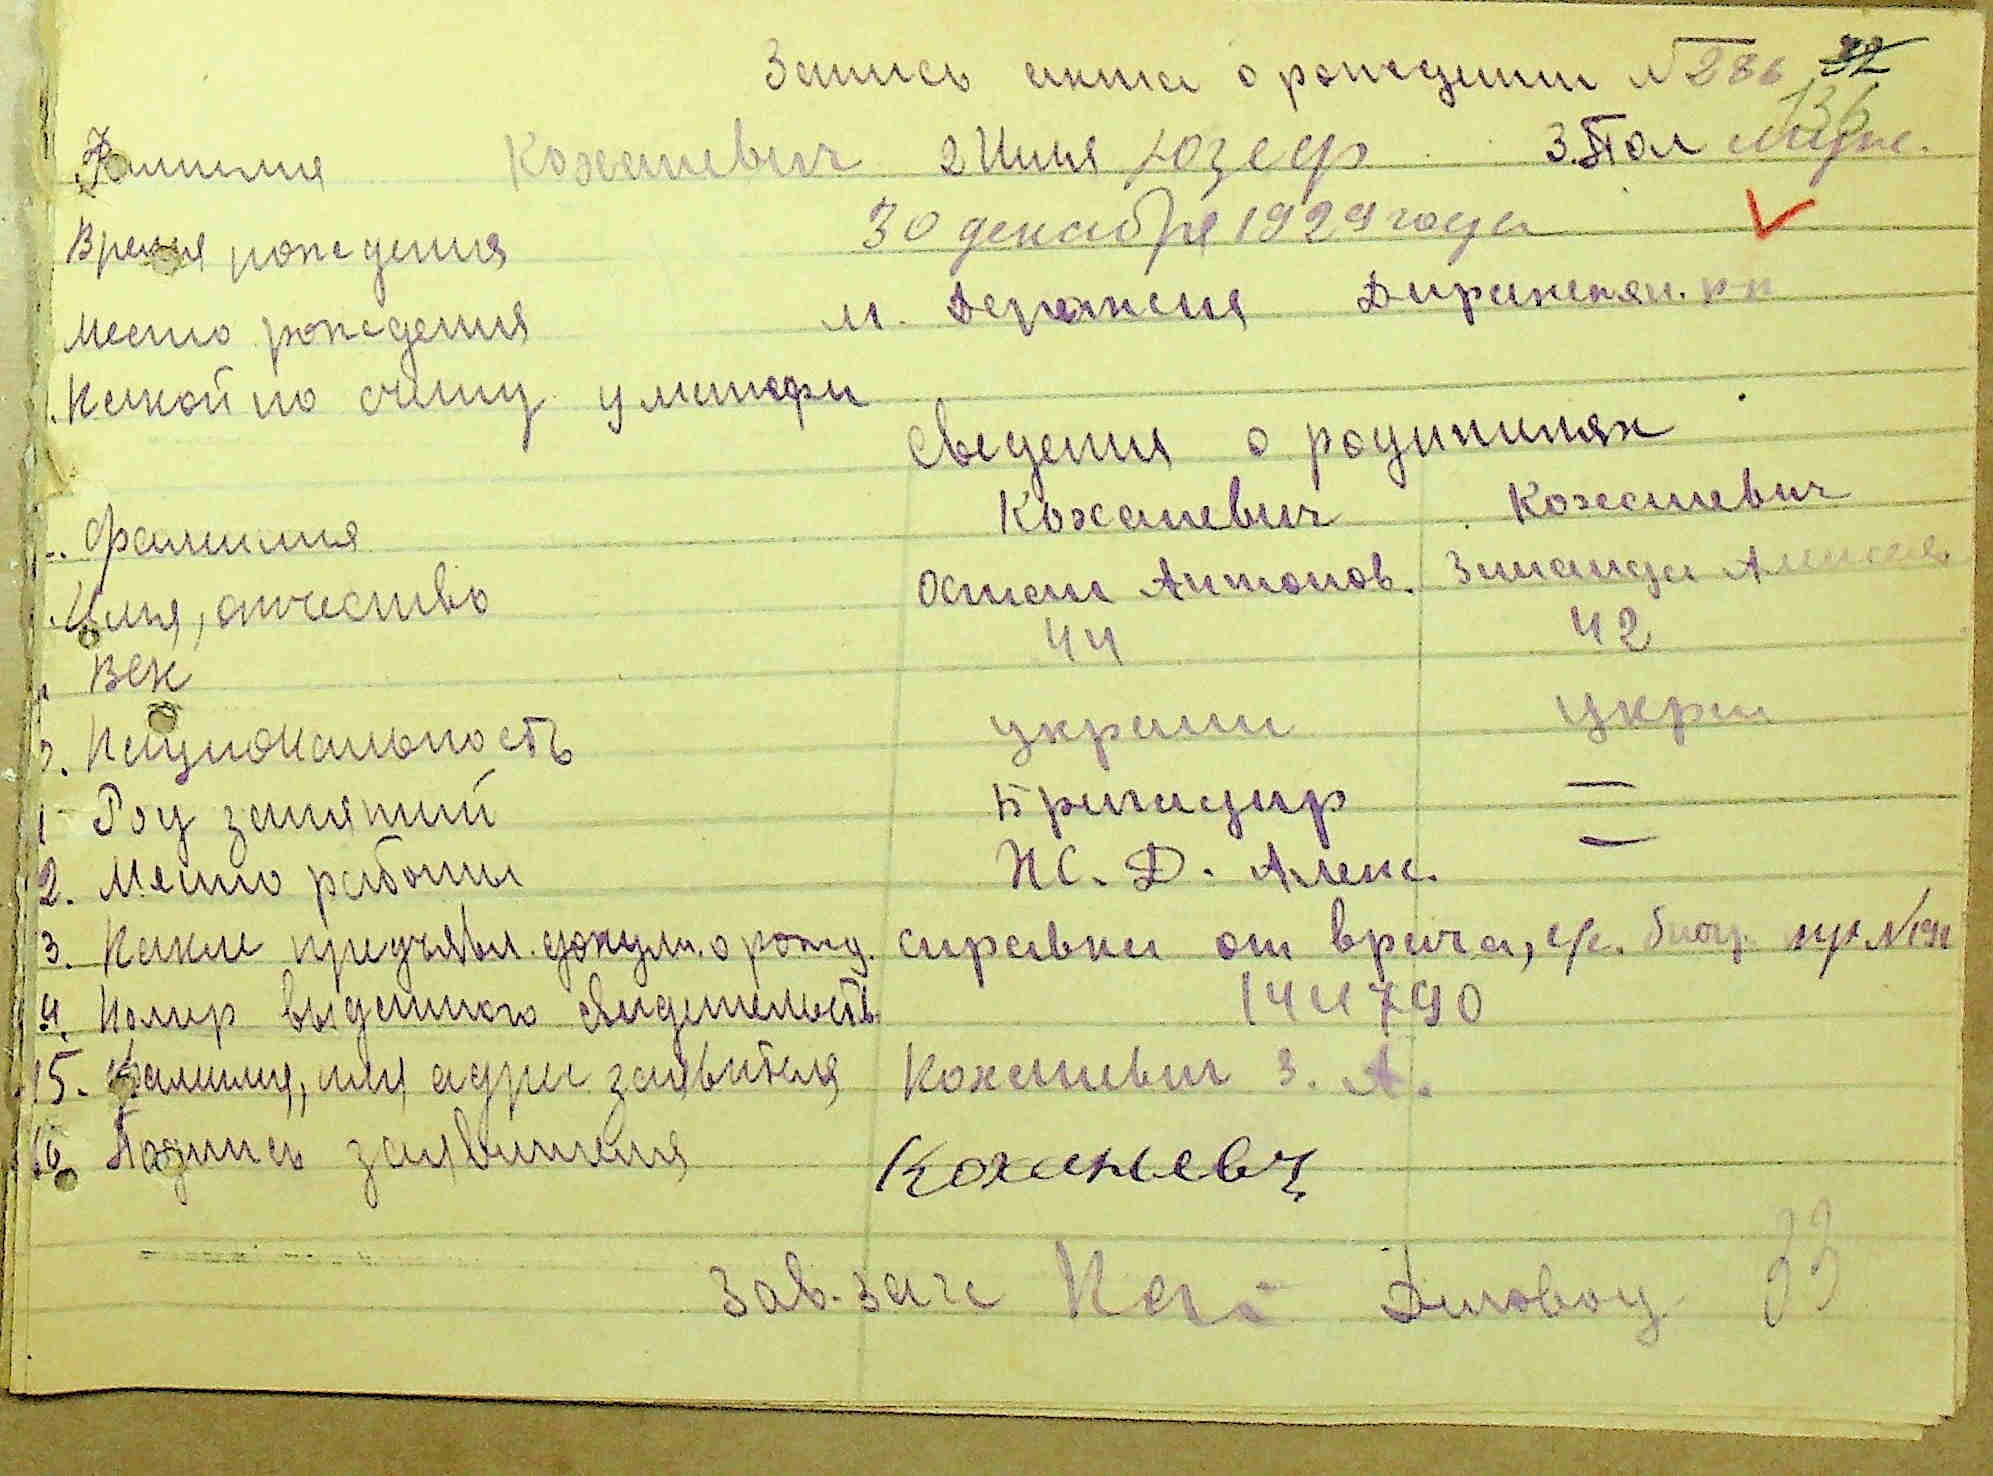 Запись акта о рождении №286 32
136
Фамилия Коханевич 2 Имя Юзеф 3. Пол муж.
Время рождения 30 декабря 1929 года
Место рождения м. Деражня
Какой по счету у матери
Сведения о родителях
Фамилия Коханевич Коханевич
Имя, отчество Остап Антонов. Зинаида
Век 44 42
Национальность украин Укра
Род занятий Бригадир —
2. Место работы Ж.Д. Алекс. —
3. Какие пред'явл. докум. о рожд. справка от врача,
4. Номер выданного свидетельств. 144790
15. Фамилия, имя адрес заявителя Коханевич З. А.
16 Подпись заявителя Коханевч
Зав. загс Деловод 33